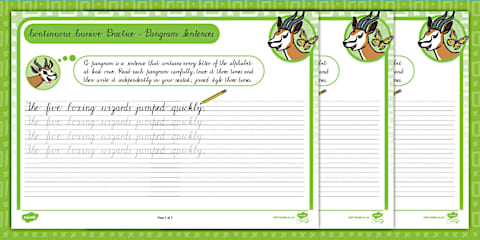 Continuous Cursive Practice - Pangram Sentences
A pangram is a sentence that contains every letter of the alphabet
at least once. Read each pangram carefully, trace it three times and
then write it independently in your neatest, joined style three times.
The five boxing wizards jumped quickly.
The five boxing wizards jumped quickly.
The five boxing wizards jumped quickly.
The five boxing wizards jumped quickly.
twinkl
Page 1 of 3